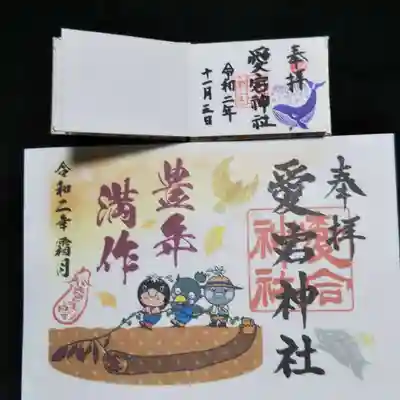 奉拝
愛宕神社
令和二年
十一月三日
奉拝
愛宕神社
豊年
満作
令和二年 霜月